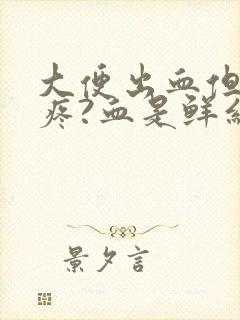 大便出血但
疼?血是鲜红
景夕言